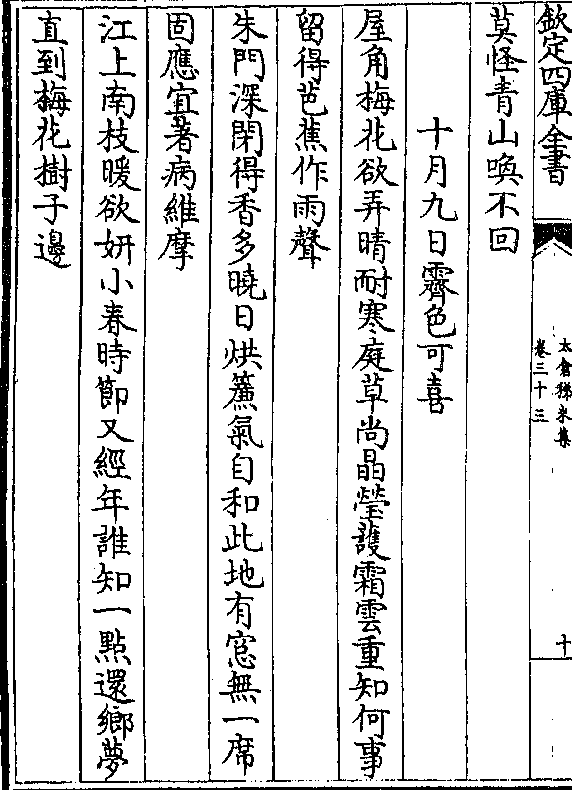 欽定四庫全書
太倉稊米集
卷三十三
十
莫怪青山喚不回
十月九日霽色可喜
屋角梅花欲弄晴耐寒庭草尚晶瑩䕶霜雲重知何事
留得芭蕉作雨聲
朱門深閉得香多曉日烘簾氣自和此地有窓無一席
固應宜著病維摩
江上南枝暖欲妍小春時節又經年誰知一點還鄉夢
直到梅花樹子邊